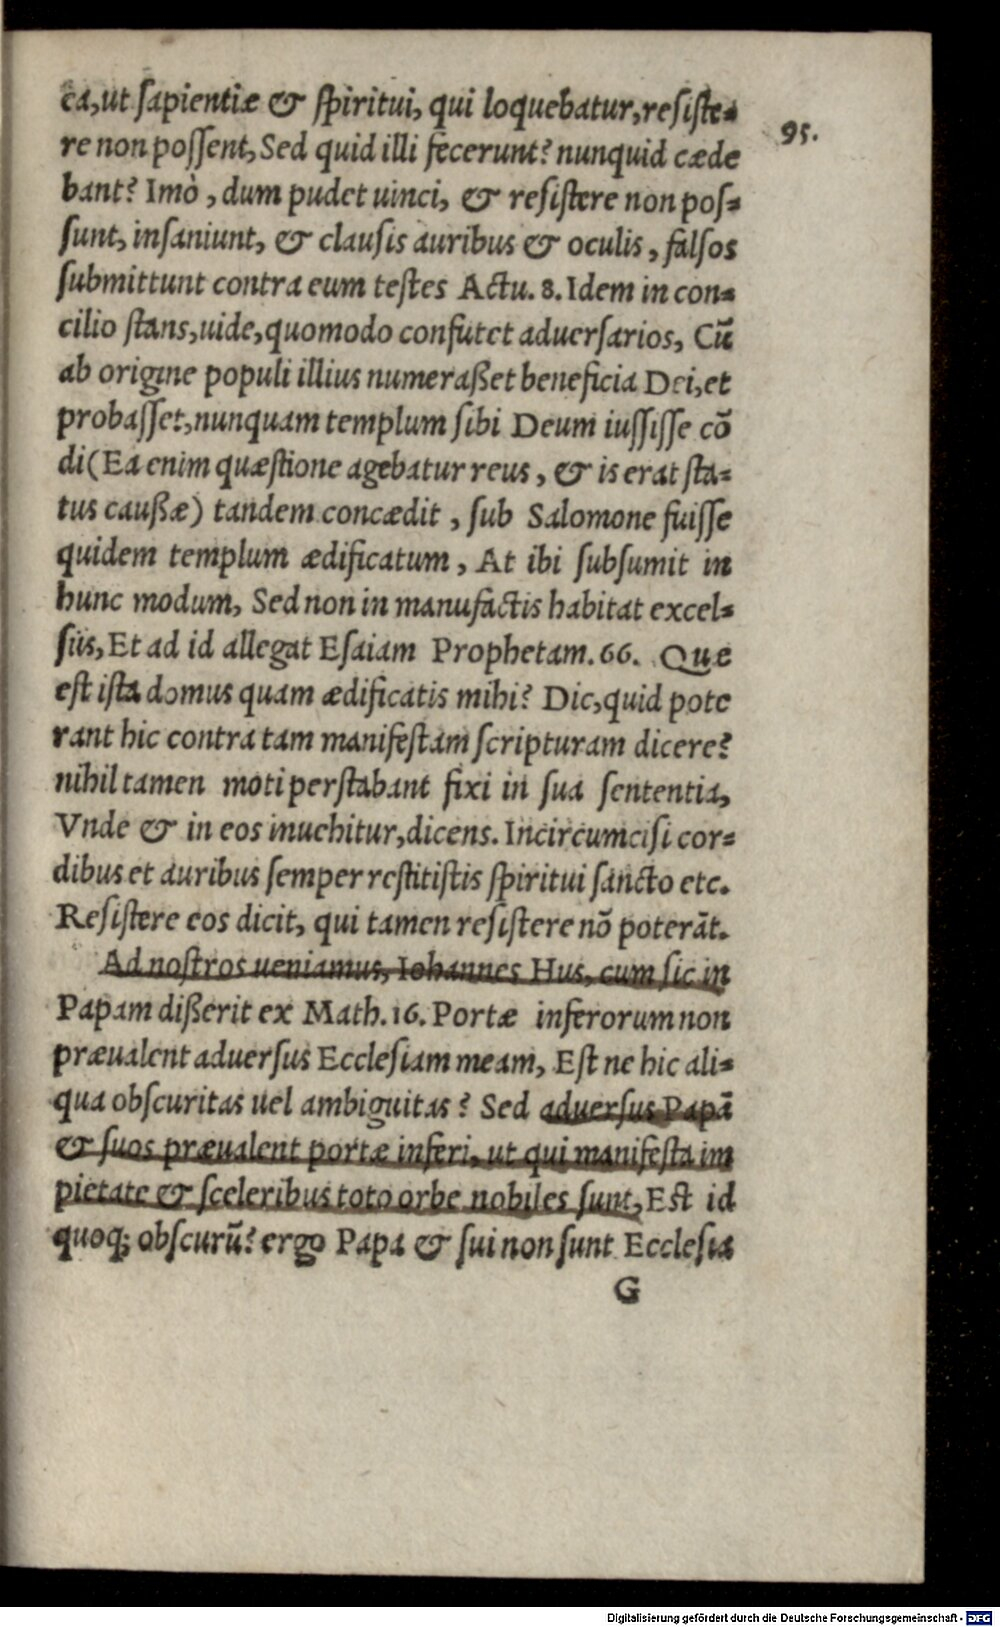 ea, ut sapientiæ & spiritui, qui loquebatur, resiste-
re non possent, Sed quid illi fecerunt? nunquid cæde
bant? Imò, dum pudet uinci, & resistere non pos-
sunt, insaniunt, & clausis auribus & oculis, falsos
submittunt contra eum testes Actu. 8. Idem in con-
cilio stans, uide, quomodo confutet aduersarios, Cū
ab origine populi illius numeraßet beneficia Dei, et
probasset, nunquam templum sibi Deum iussisse cō
di (Ea enim quæstione agebatur reus, & is erat sta-
tus caußæ) tandem concædit, sub Salomone fuisse
quidem templum ædificatum, At ibi subsumit in
hunc modum, Sed non in manufactis habitat excel-
sus, Et ad id allegat Esaiam Prophetam. 66. Quæ
est ista domus quam ædificatis mihi? Dic, quid pote
rant hic contra tam manifestam scripturam dicere?
nihil tamen moti perstabant fixi in sua sententia,
Vnde & in eos inuehitur, dicens. Incircumcisi cor-
dibus et auribus semper restitistis spiritui sancto etc.
Resistere eos dicit, qui tamen resistere nō poterāt.
Ad nostros ueniamus, Iohannes Hus, cum sic in
Papam dißerit ex Math. 16. Portæ inferorum non
præualent aduersus Ecclesiam meam, Est ne hic ali-
qua obscuritas uel ambiguitas? Sed aduersus Papā
& suos præualent portæ inferi, ut qui manifesta im
pietate & sceleribus toto orbe nobiles sunt, Est id
quoq; obscurū? ergo Papa & sui non sunt Ecclesia
G
95.
Digitalisierung gefördert durch die Deutsche Forschungsgemeinschaft - DFG